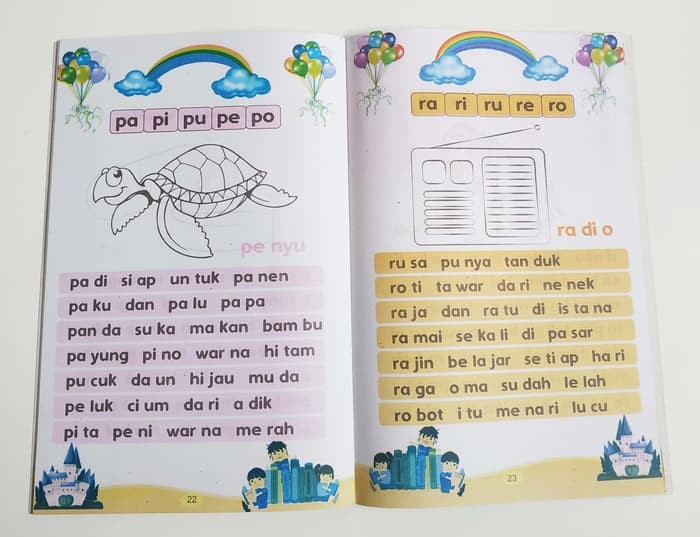 pa pi pu pe po
pe nyu
pa di si ap un tuk pa nen
pa ku dan pa lu pa pa
pan da su ka ma kan bam bu
pa yung pi no war na hi tam
pu cuk da un hi jau mu da
pe luk ci um da ri a dik
pi ta pe ni war na me rah
22
ra ri ru re ro
ra di o
ru sa pu nya tan duk
ro ti ta war da ri ne nek
ra ja dan ra tu di is ta na
ra mai se ka li di pa sar
ra jin be la jar se ti ap ha ri
ra ga o ma su dah le lah
ro bot i tu me na ri lu cu
23